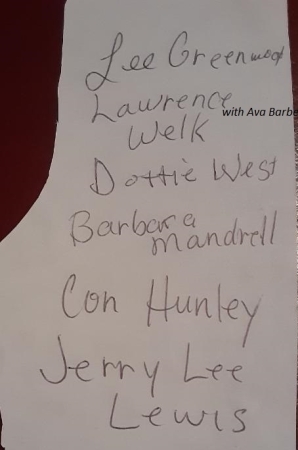 Lee Greenwood
Lawrence
with Ava Barbe
Welk
Dottie West
Barbara
Mandrell
Con Hunley
Jerry Lee
Lewis